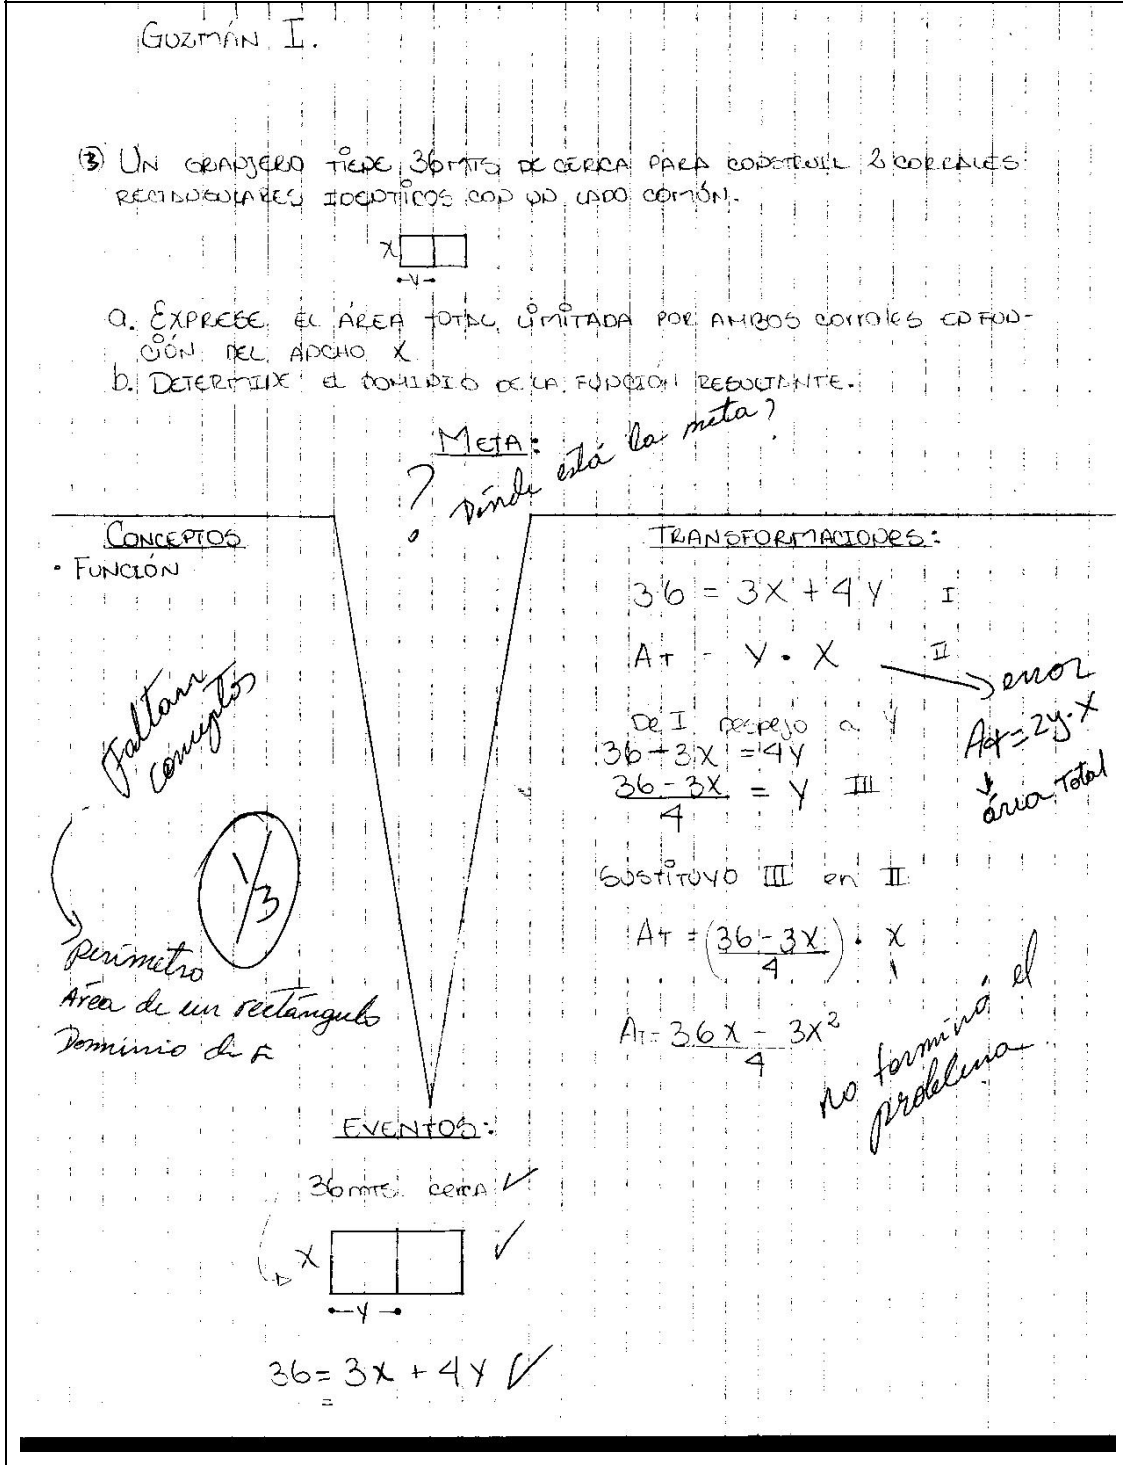 GUZMÁN I.
③ UN GRANJERO TIENE 36 MTS DE CERCA PARA CONSTRUIR 2 CORRALES
RECTANGULARES IDENTICOS CON UN LADO COMÚN.
X
Y
a. EXPRESE EL ÁREA TOTAL LIMITADA POR AMBOS CORRALES EN FUN-
CIÓN DEL ANCHO X
b. DETERMINE EL DOMINIO DE LA FUNCIÓN RESULTANTE.
META:
? Dónde está la meta?
CONCEPTOS
• FUNCIÓN
Faltan
conceptos
1/3
Perímetro
Área de un rectángulo
Dominio de F
TRANSFORMACIONES:
36 = 3X + 4Y I
AT = Y • X II
error
AT = 2y•X
área Total
De I despejo a Y
36 - 3X = 4Y
36 - 3X / 4 = Y III
SUSTITUYO III en II
AT = (36 - 3X / 4) • X
AT = 36X - 3X² / 4
no terminó el
problema
EVENTOS:
36 mts cerca ✓
X ✓
Y
36 = 3X + 4Y ✓